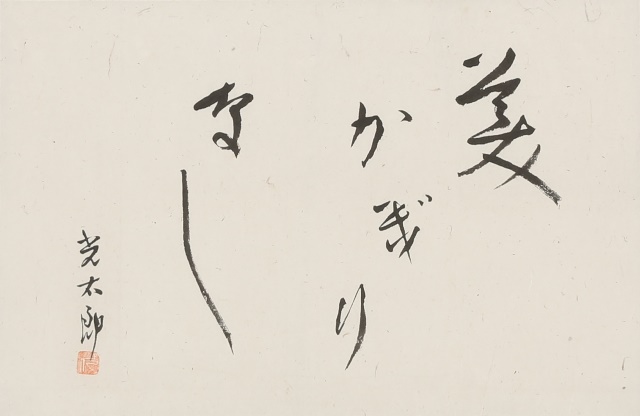 美
かぎり
なし
光太郎